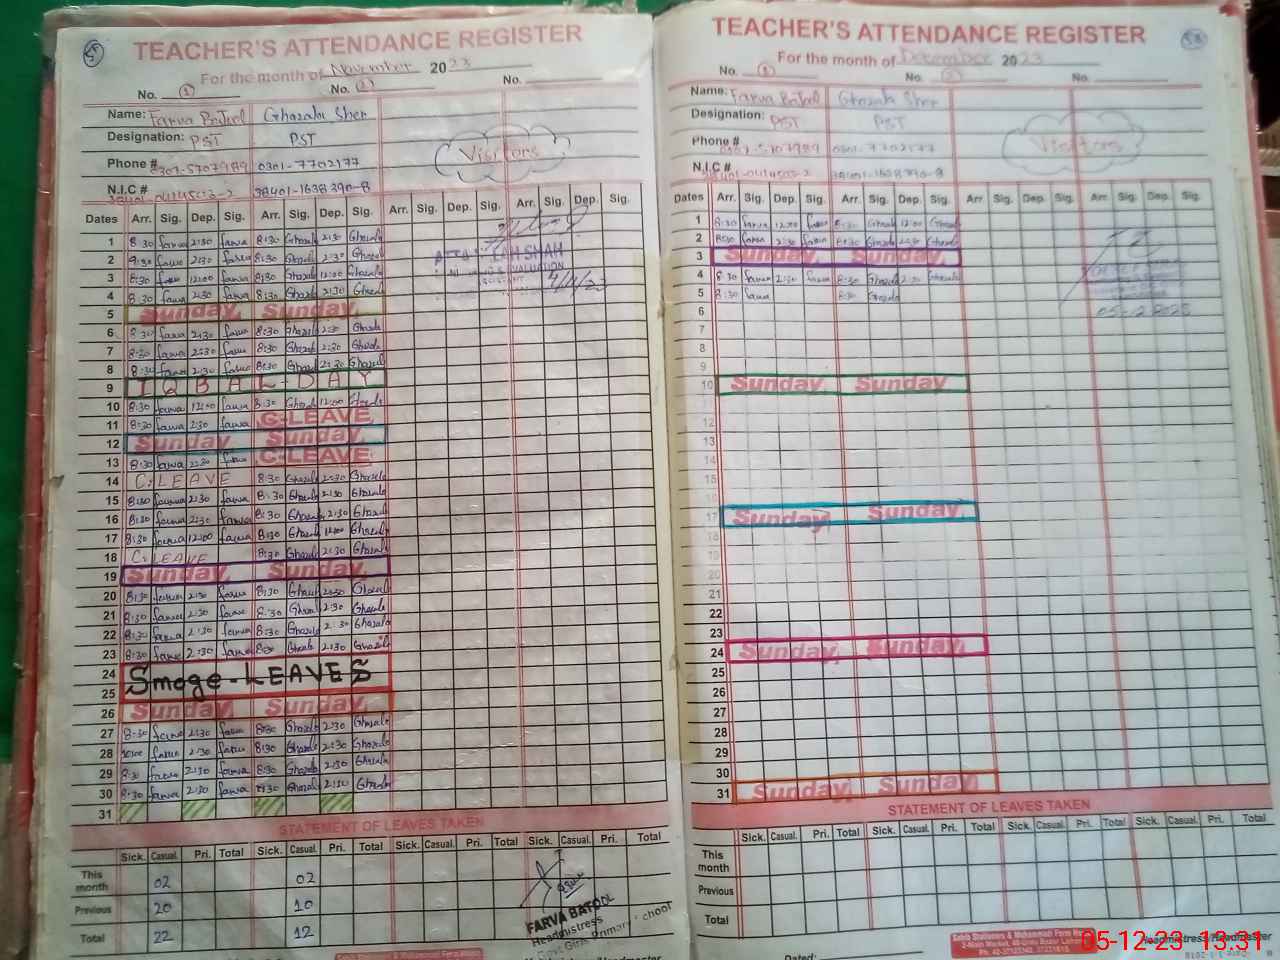 TEACHER'S ATTENDANCE REGISTER
For the month of November 2023
No. 1 No. 2 No.
Name: Farva Batool Ghazala Sher
Designation: PST PST
Phone # 0307-5707989 0301-7702177
Visitors
N.I.C # 38401-1638390-8
Dates Arr. Sig. Dep. Sig. Arr. Sig. Dep. Sig. Arr. Sig. Dep. Sig. Arr. Sig. Dep. Sig.
1 8:30 farwa 2:30 farwa 8:30 Ghazala 2:30 Ghazala
2 9:30 farwa 2:30 farwa 8:30 Ghazala 2:30 Ghazala
3 8:30 farwa 12:00 farwa 8:30 Ghazala 12:00 Ghazala
4 8:30 farwa 2:30 farwa 8:30 Ghazala 2:30 Ghazala
5 Sunday, Sunday,
6 8:30 farwa 2:30 farwa 8:30 Ghazala 2:30 Ghazala
7 8:30 farwa 2:30 farwa 8:30 Ghazala 2:30 Ghazala
8 8:30 farwa 2:30 farwa 8:30 Ghazala 2:30 Ghazala
9 IQBAL-DAY
10 8:30 farwa 12:00 farwa 8:30 Ghazala 12:00 Ghazala
11 8:30 farwa 2:30 farwa C-LEAVE,
12 Sunday, Sunday,
13 8:30 farwa 2:30 farwa C-LEAVE,
14 C.LEAVE 8:30 Ghazala 2:30 Ghazala
15 8:30 farwa 2:30 farwa 8:30 Ghazala 2:30 Ghazala
16 8:30 farwa 2:30 farwa 8:30 Ghazala 2:30 Ghazala
17 8:30 farwa 12:00 farwa 8:30 Ghazala 12:00 Ghazala
18 C.LEAVE 8:30 Ghazala 2:30 Ghazala
19 Sunday, Sunday,
20 8:30 farwa 2:30 farwa 8:30 Ghazala 2:30 Ghazala
21 8:30 farwa 2:30 farwa 8:30 Ghazala 2:30 Ghazala
22 8:30 farwa 2:30 farwa 8:30 Ghazala 2:30 Ghazala
23 8:30 farwa 2:30 farwa 8:30 Ghazala 2:30 Ghazala
24
25 Smoge-LEAVES
26 Sunday, Sunday,
27 8:30 farwa 2:30 farwa 8:30 Ghazala 2:30 Ghazala
28 10:00 farwa 2:30 farwa 8:30 Ghazala 2:30 Ghazala
29 8:30 farwa 2:30 farwa 8:30 Ghazala 2:30 Ghazala
30 8:30 farwa 2:30 farwa 8:30 Ghazala 2:30 Ghazala
31
STATEMENT OF LEAVES TAKEN
Sick. Casual. Pri. Total Sick. Casual. Pri. Total Sick. Casual. Pri. Total Sick. Casual. Pri. Total
This month 02 02
Previous 20 10
Total 22 12
FARVA BATOOL
Headmistress
Girls Primary School
TEACHER'S ATTENDANCE REGISTER
58
For the month of December 2023
No. 1 No. 2 No.
Name: Farva Batool Ghazala Sher
Designation: PST PST
Phone # 0307-5707989 0301-7702177
Visitors
N.I.C #
Dates Arr. Sig. Dep. Sig. Arr. Sig. Dep. Sig. Arr. Sig. Dep. Sig. Arr. Sig. Dep. Sig.
1 8:30 farwa 12:00 farwa 8:30 Ghazala 12:00 Ghazala
2 8:30 farwa 2:30 farwa 8:30 Ghazala 2:30 Ghazala
3 Sunday, Sunday,
4 8:30 farwa 2:30 farwa 8:30 Ghazala 2:30 Ghazala
5 8:30 farwa 8:30 Ghazala
6 05-12-2023
7
8
9
10 Sunday, Sunday
11
12
13
14
15
16
17 Sunday, Sunday,
18
19
20
21
22
23
24 Sunday, Sunday,
25
26
27
28
29
30
31 Sunday, Sunday,
STATEMENT OF LEAVES TAKEN
Sick. Casual. Pri. Total Sick. Casual. Pri. Total Sick. Casual. Pri. Total Sick. Casual. Pri. Total
This month
Previous
Total
Headmistress/Headmaster
Dated:
05-12-23 13:31